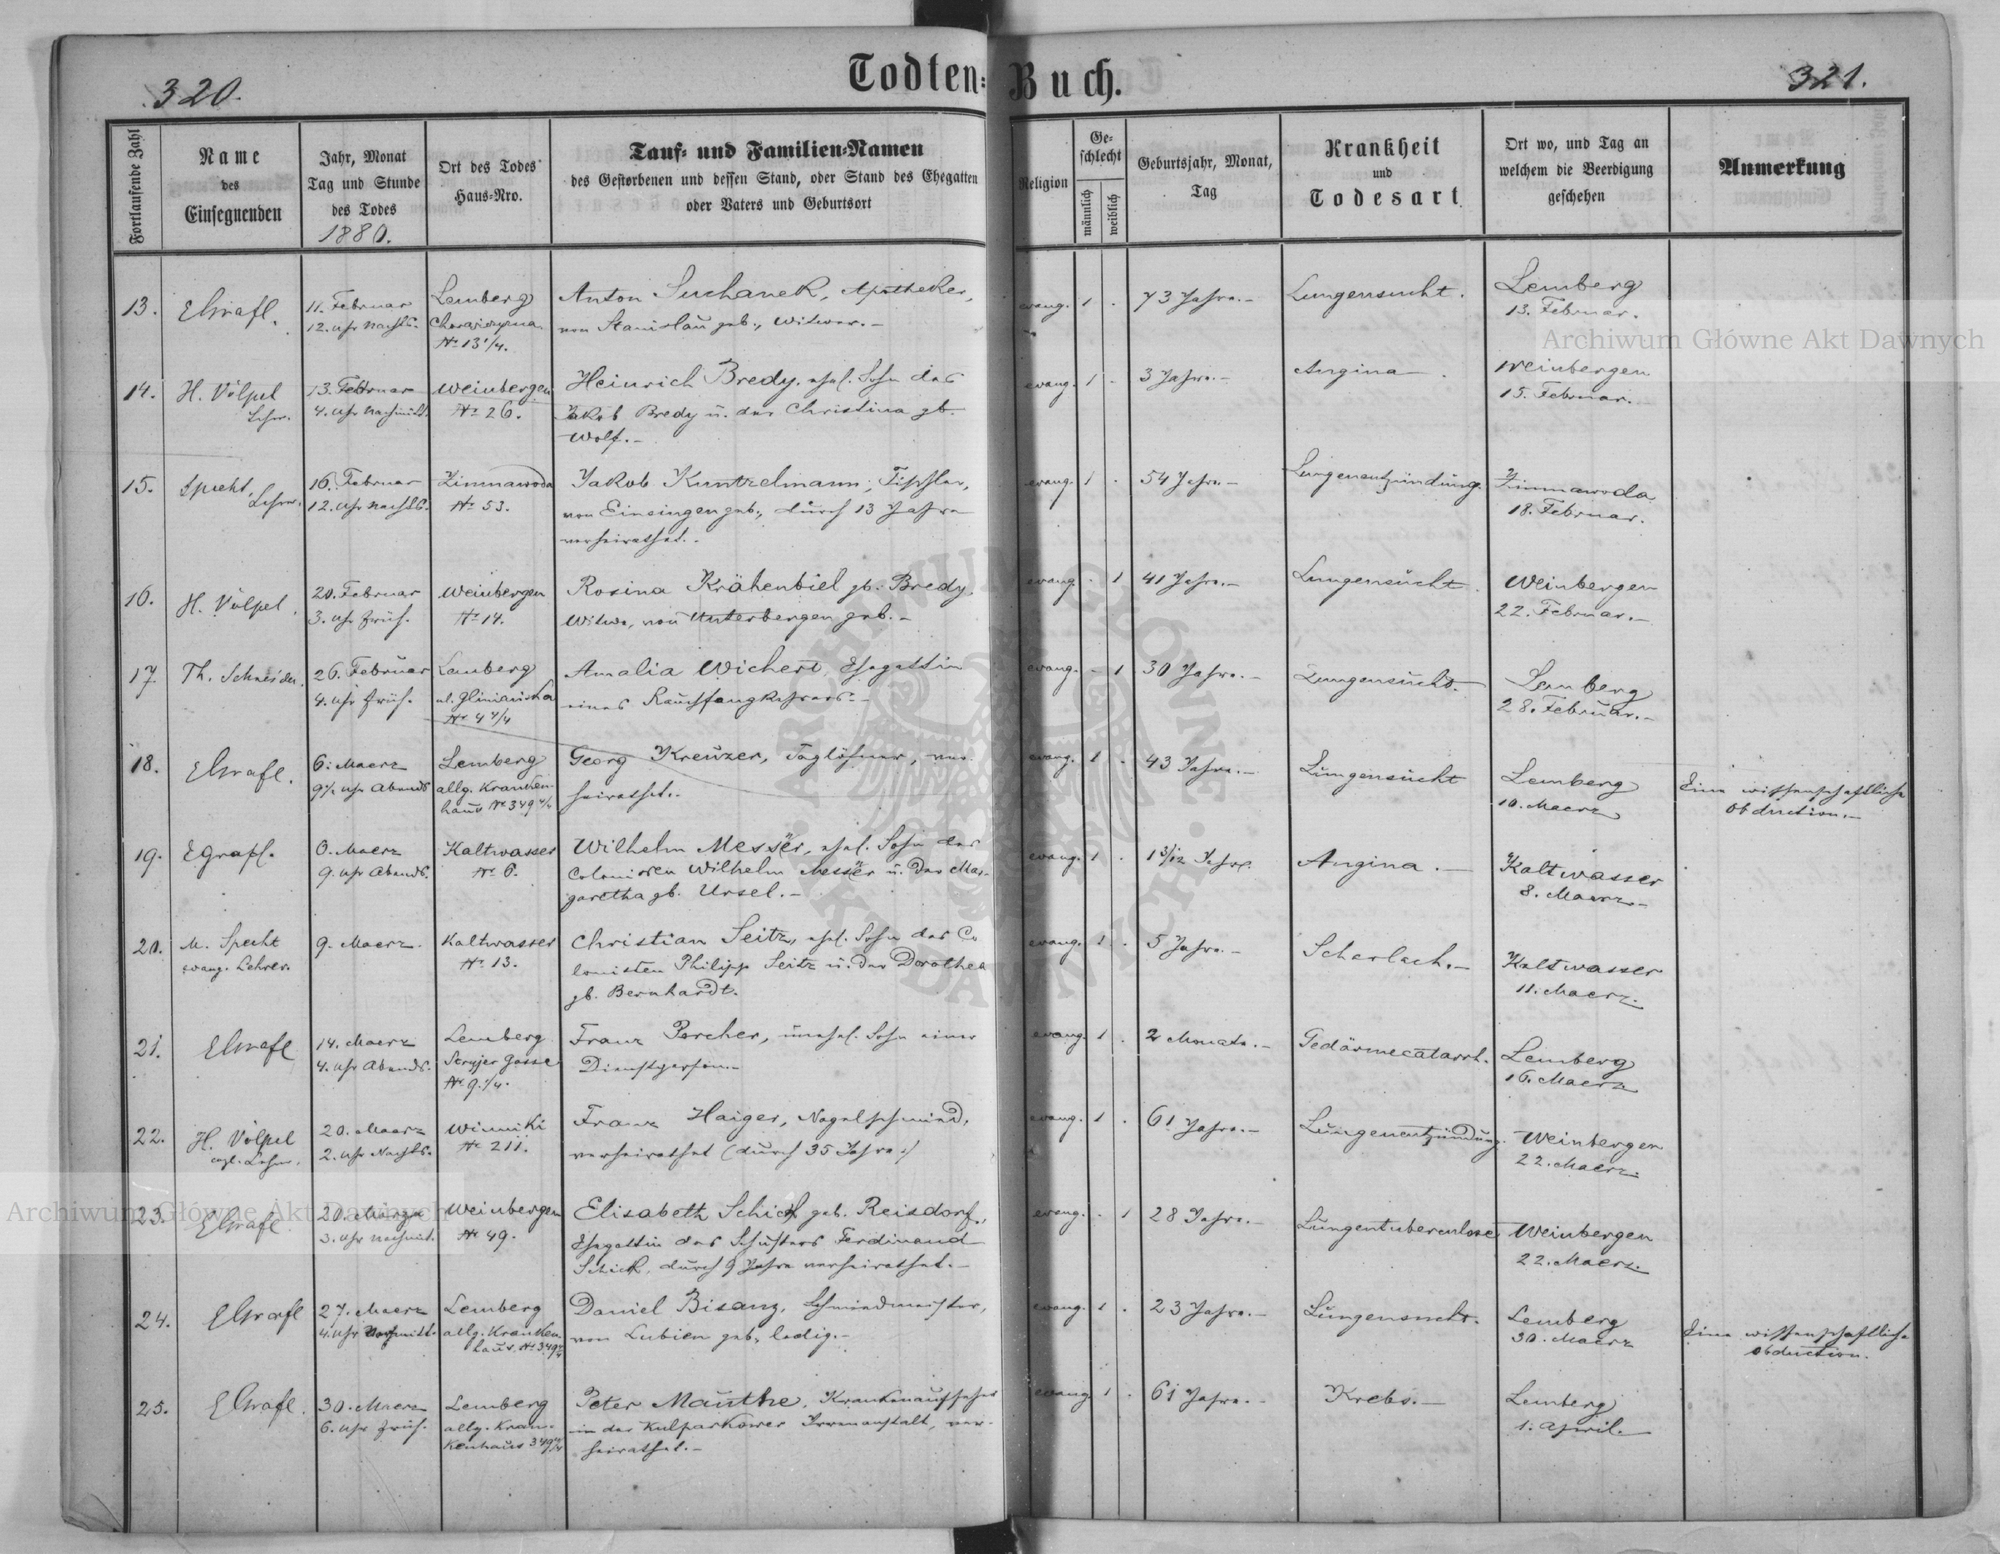 320.
Todten-Buch.
321.
Fortlaufende Zahl
Name
des
Einsegnenden
Jahr, Monat
Tag und Stunde
des Todes
1880.
Ort des Todes
Haus-Nro.
Tauf- und Familien-Namen
des Gestorbenen und dessen Stand, oder Stand des Ehegatten
oder Vaters und Geburtsort
Religion
Geschlecht
männlich
weiblich
Geburtsjahr, Monat,
Tag
Krankheit
und
Todesart
Ort wo, und Tag an
welchem die Beerdigung
geschehen
Anmerkung
13.
EGrafl.
11. Februar
12. Uhr Nachts.
Lemberg
No 13 1/4.
Anton Suchanek, Apotheker,
von Stanislau geb., Witwer.-
evang. 1 .
73 Jahre.-
Lungensucht.
Lemberg
13. Februar.
14.
H. Völpel
Lehrer.
13. Februar
4. Uhr Nachmitt.
Weinbergen
No 26.
Heinrich Bredy, ehel. Sohn des
Jakob Bredy u. der Christina gb.
Wolf.-
evang. 1 .
3 Jahre.-
Angina
Weinbergen
15. Februar.
15.
Specht,
Lehrer.
16. Februar
12. Uhr Nachts.
Zimnawoda
No 53.
Jakob Kuntzelmann, Tischler,
von Einsingen geb., durch 13 Jahre
verheirathet.-
evang. 1 .
54 Jahre.-
Lungenentzündung.
Zimnawoda
18. Februar.
16.
H. Völpel.
20. Februar
3. Uhr Früh.
Weinbergen
No 14.
Rosina Krähenbiel gb. Bredy,
Witwe, von Unterbergen geb.-
evang. . 1
41 Jahre.-
Lungensucht.
Weinbergen
22. Februar.-
17.
Th. Schneider.
26. Februar
4. Uhr Früh.
Lemberg
No 4 4/4
Amalia Wichert, Ehegattin
eines Rauchfangkehrers.-
evang. - 1
30 Jahre.-
Lungensucht.
Lemberg
28. Februar.-
18.
EGrafl.
6. Maerz
9 1/2 Uhr Abends
Lemberg
allg. Kranken-
haus No 349 4/4
Georg Kreuzer, Taglöhner, ver-
heirathet.-
evang. 1 .
43 Jahre.-
Lungensucht
Lemberg
10. Maerz
Eine wissenschaftliche
Obduction.-
19.
EGrafl.
6. Maerz
9. Uhr Abends.
Kaltwasser
No 6.
Wilhelm Messer, ehel. Sohn des
Colonisten Wilhelm Messer u. der Mar-
garetha gb. Ursel.-
evang. 1 .
1 3/12 Jahre.
Angina.-
Kaltwasser
8. Maerz.-
20.
M. Specht
evang. Lehrer.
9. Maerz.
Kaltwasser
No 13.
Christian Seitz, ehel. Sohn des Co-
lonisten Philipp Seitz u. der Dorothea
gb. Bernhardt.
evang. 1 .
5 Jahre.-
Scharlach.-
Kaltwasser
11. Maerz.
21.
EGrafl
14. Maerz
4. Uhr Abends.
Lemberg
No 9 1/4.
Franz Porcher, unehel. Sohn einer
Dienstperson.-
evang. 1 .
2 Monate.-
Gedärmecatarrh.
Lemberg
16. Maerz
22.
H. Völpel
evgl. Lehrer.
20. Maerz
2. Uhr Nachts.
Winniki
No 211.
Franz Haiger, Nagelschmied,
verheirathet (durch 35 Jahre.)
evang. 1 .
61 Jahre.-
Lungenentzündung.
Weinbergen
22. Maerz.
23.
EGrafl
20. Maerz
3. Uhr Nachmit.
Weinbergen
No 49.
Elisabeth Schick geb. Reisdorf,
Ehegattin des Schusters Ferdinand
Schick, durch 9 Jahre verheirathet.-
evang. . 1
28 Jahre.-
Lungentuberculose
Weinbergen
22. Maerz.
24.
EGrafl
27. Maerz
4. Uhr Nachmitt.
Lemberg
allg. Kranken-
haus No 349 4/4
Daniel Bisanz, Schmiedmeister,
von Lubien geb., ledig.-
evang. 1 .
23 Jahre.-
Lungensucht.
Lemberg
30. Maerz
Eine wissenschaftliche
Obduction.
25.
EGrafl.
30. Maerz
6. Uhr Früh.
Lemberg
allg. Kran-
kenhaus 349 4/4
Peter Mauthe, Krankenaufseher
in der Kulparkower Irrenanstalt, ver-
heirathet.-
evang. 1 .
61 Jahre.-
Krebs.-
Lemberg
1. April.
Archiwum Główne Akt Dawnych
Archiwum Główne Akt Dawnych
ARCHIWUM GŁÓWNE AKT DAWNYCH